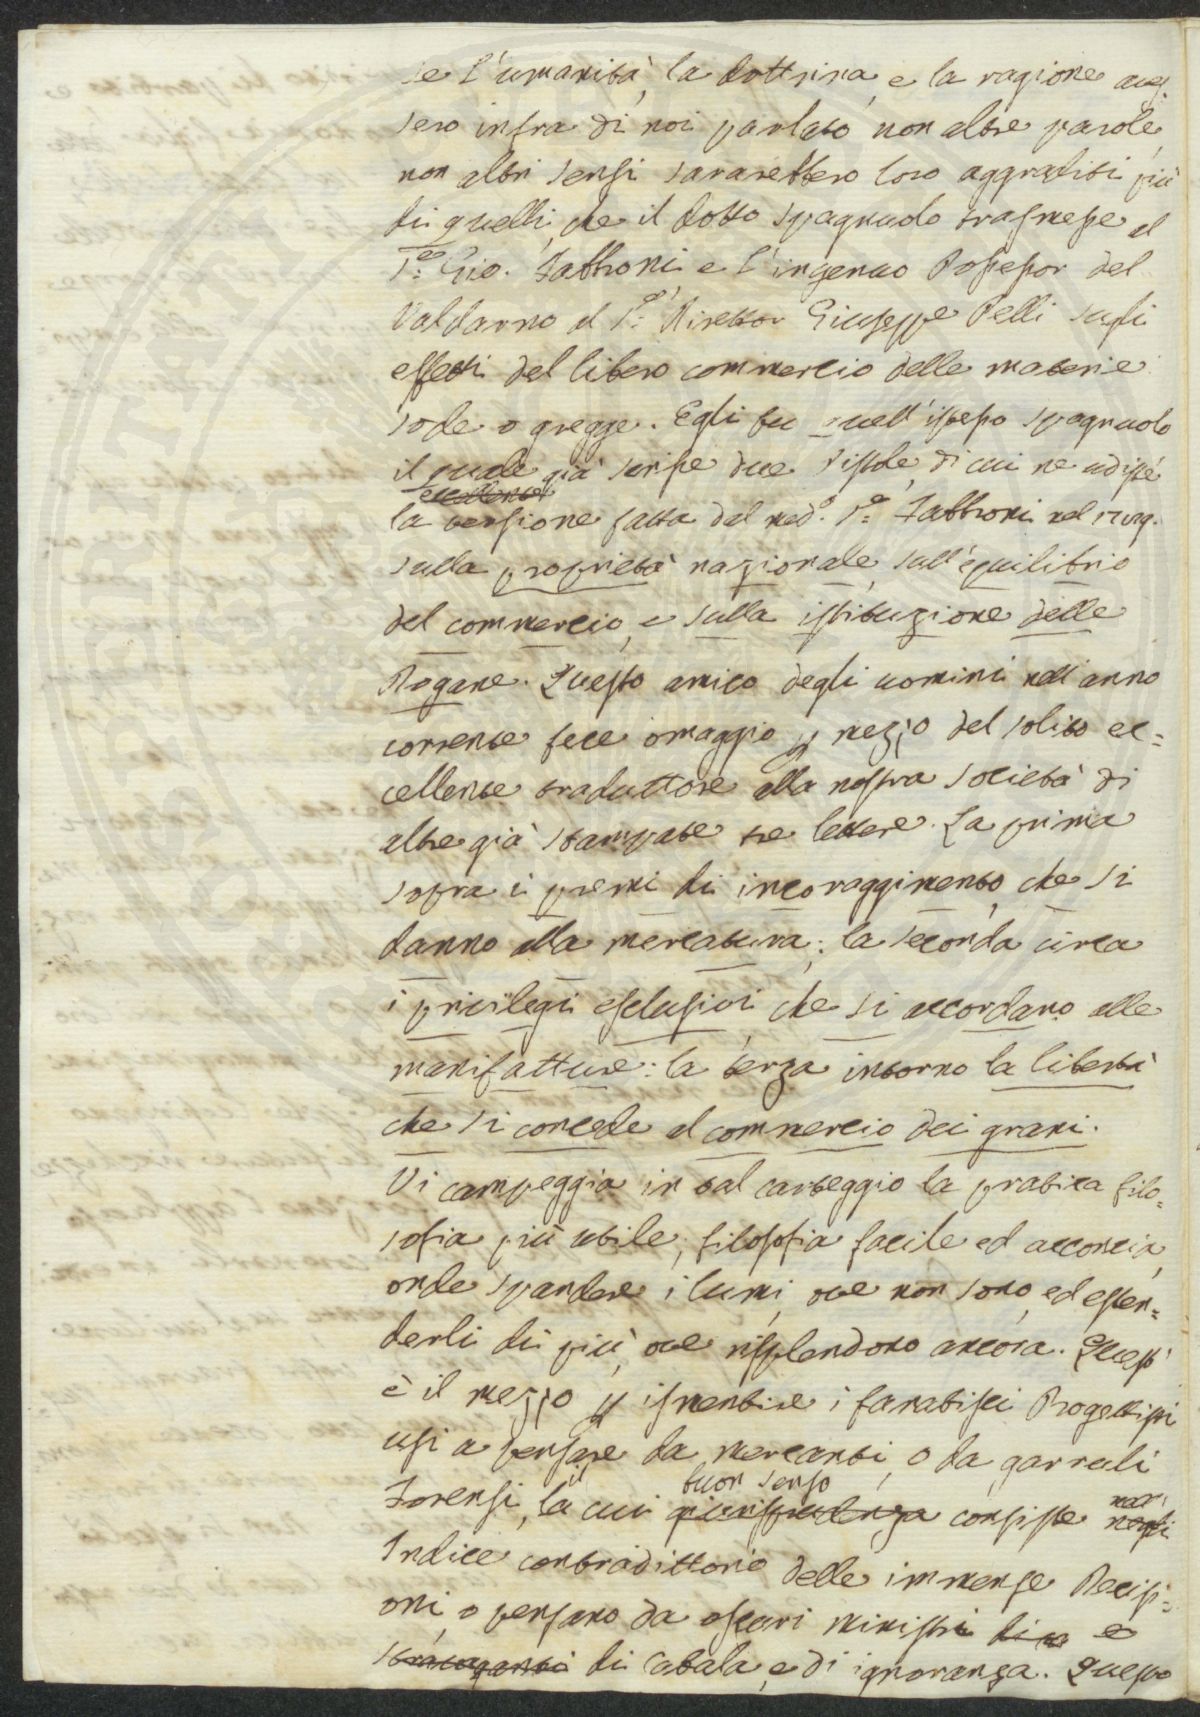 se l'umanità, la dottrina, e la ragione aves-
sero infra di noi parlato non altre parole,
non altri sensi sararebbero loro aggraditi più
di quelli, che il dotto spagnuolo trasmesse al
S.re Gio. Fabbroni e l'ingenuo Possessor del
Valdarno al S.r Direttor Giuseppe Pelli sugli
effetti del libero commercio delle materie
sode o gregge. Egli fu quell'istesso spagnuolo
il quale già scrisse due Pistole, di cui ne udiste
eccellente
la versione fatta dal med.o S.e Fabbroni nel 1789.
sulla proprietà nazionale, sull'equilibrio
del commercio, e sulla istituzione delle
Dogane. Questo amico degli uomini nell'anno
corrente fece omaggio p mezzo del solito ec=
cellente traduttore alla nostra società di
altre già stampate tre lettere. La prima
sopra i premi di incoraggimento, che si
danno alla mercatura; la seconda circa
i privilegi esclusivi che si accordano alle
manifatture: la terza intorno la libertà
che si concede al commercio dei grani.
Vi campeggia in tal carteggio la pratica filo=
sofia più utile, filosofia facile ed acconcia,
onde spandere i lumi, ove non sono, ed esten=
derli di più, ove risplendono ancora. Questo
è il mezzo p ismentire i fanatisci Progettisti
usi a pensare da mercanti, o da garruli
il buon senso
Forensi, la cui giurisprudenza consiste negli
Indice contradittorio delle immense Decisi=
oni, o pensano da oscuri ministri di e
stravaganti di Cabala, e di ignoranza. Questo